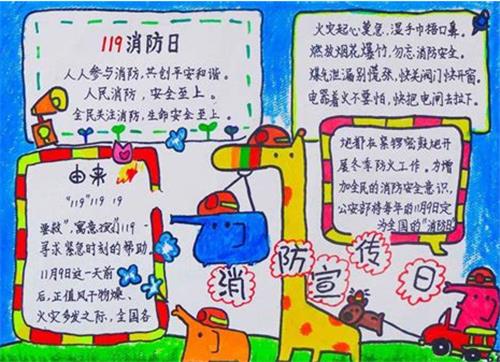 119消防日
人人参与消防，共创平安和谐。
人民消防，安全至上。
全民关注消防，生命安全至上。
火灾起心莫急，湿手巾捂口鼻。
燃放烟花爆竹，勿忘消防安全。
煤气泄漏别慌张，快关阀门快开窗。
电器着火不要怕，快把电闸去拉下。
由来
"119" 119 19
救"，寓意我们119
寻求紧急时刻的帮助。
11月9日这一天前
后，正值风干物燥、
火灾多发之际，全国各
地都在紧锣密鼓地开
展冬季防火工作。为增
加全民的消防安全意识，
公安部将每年的11月9日定
为全国的"消防日
消防宣传日